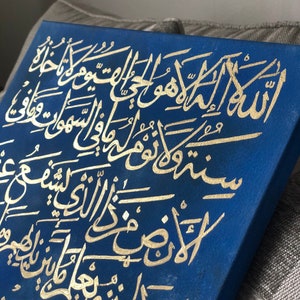 الله لا إله إلا هو الحي القيوم لا تأخذه
سنة ولا نوم له ما في السموات وما في
الأرض من ذا الذي يشفع عن
يعلم ما بين أيديهم و